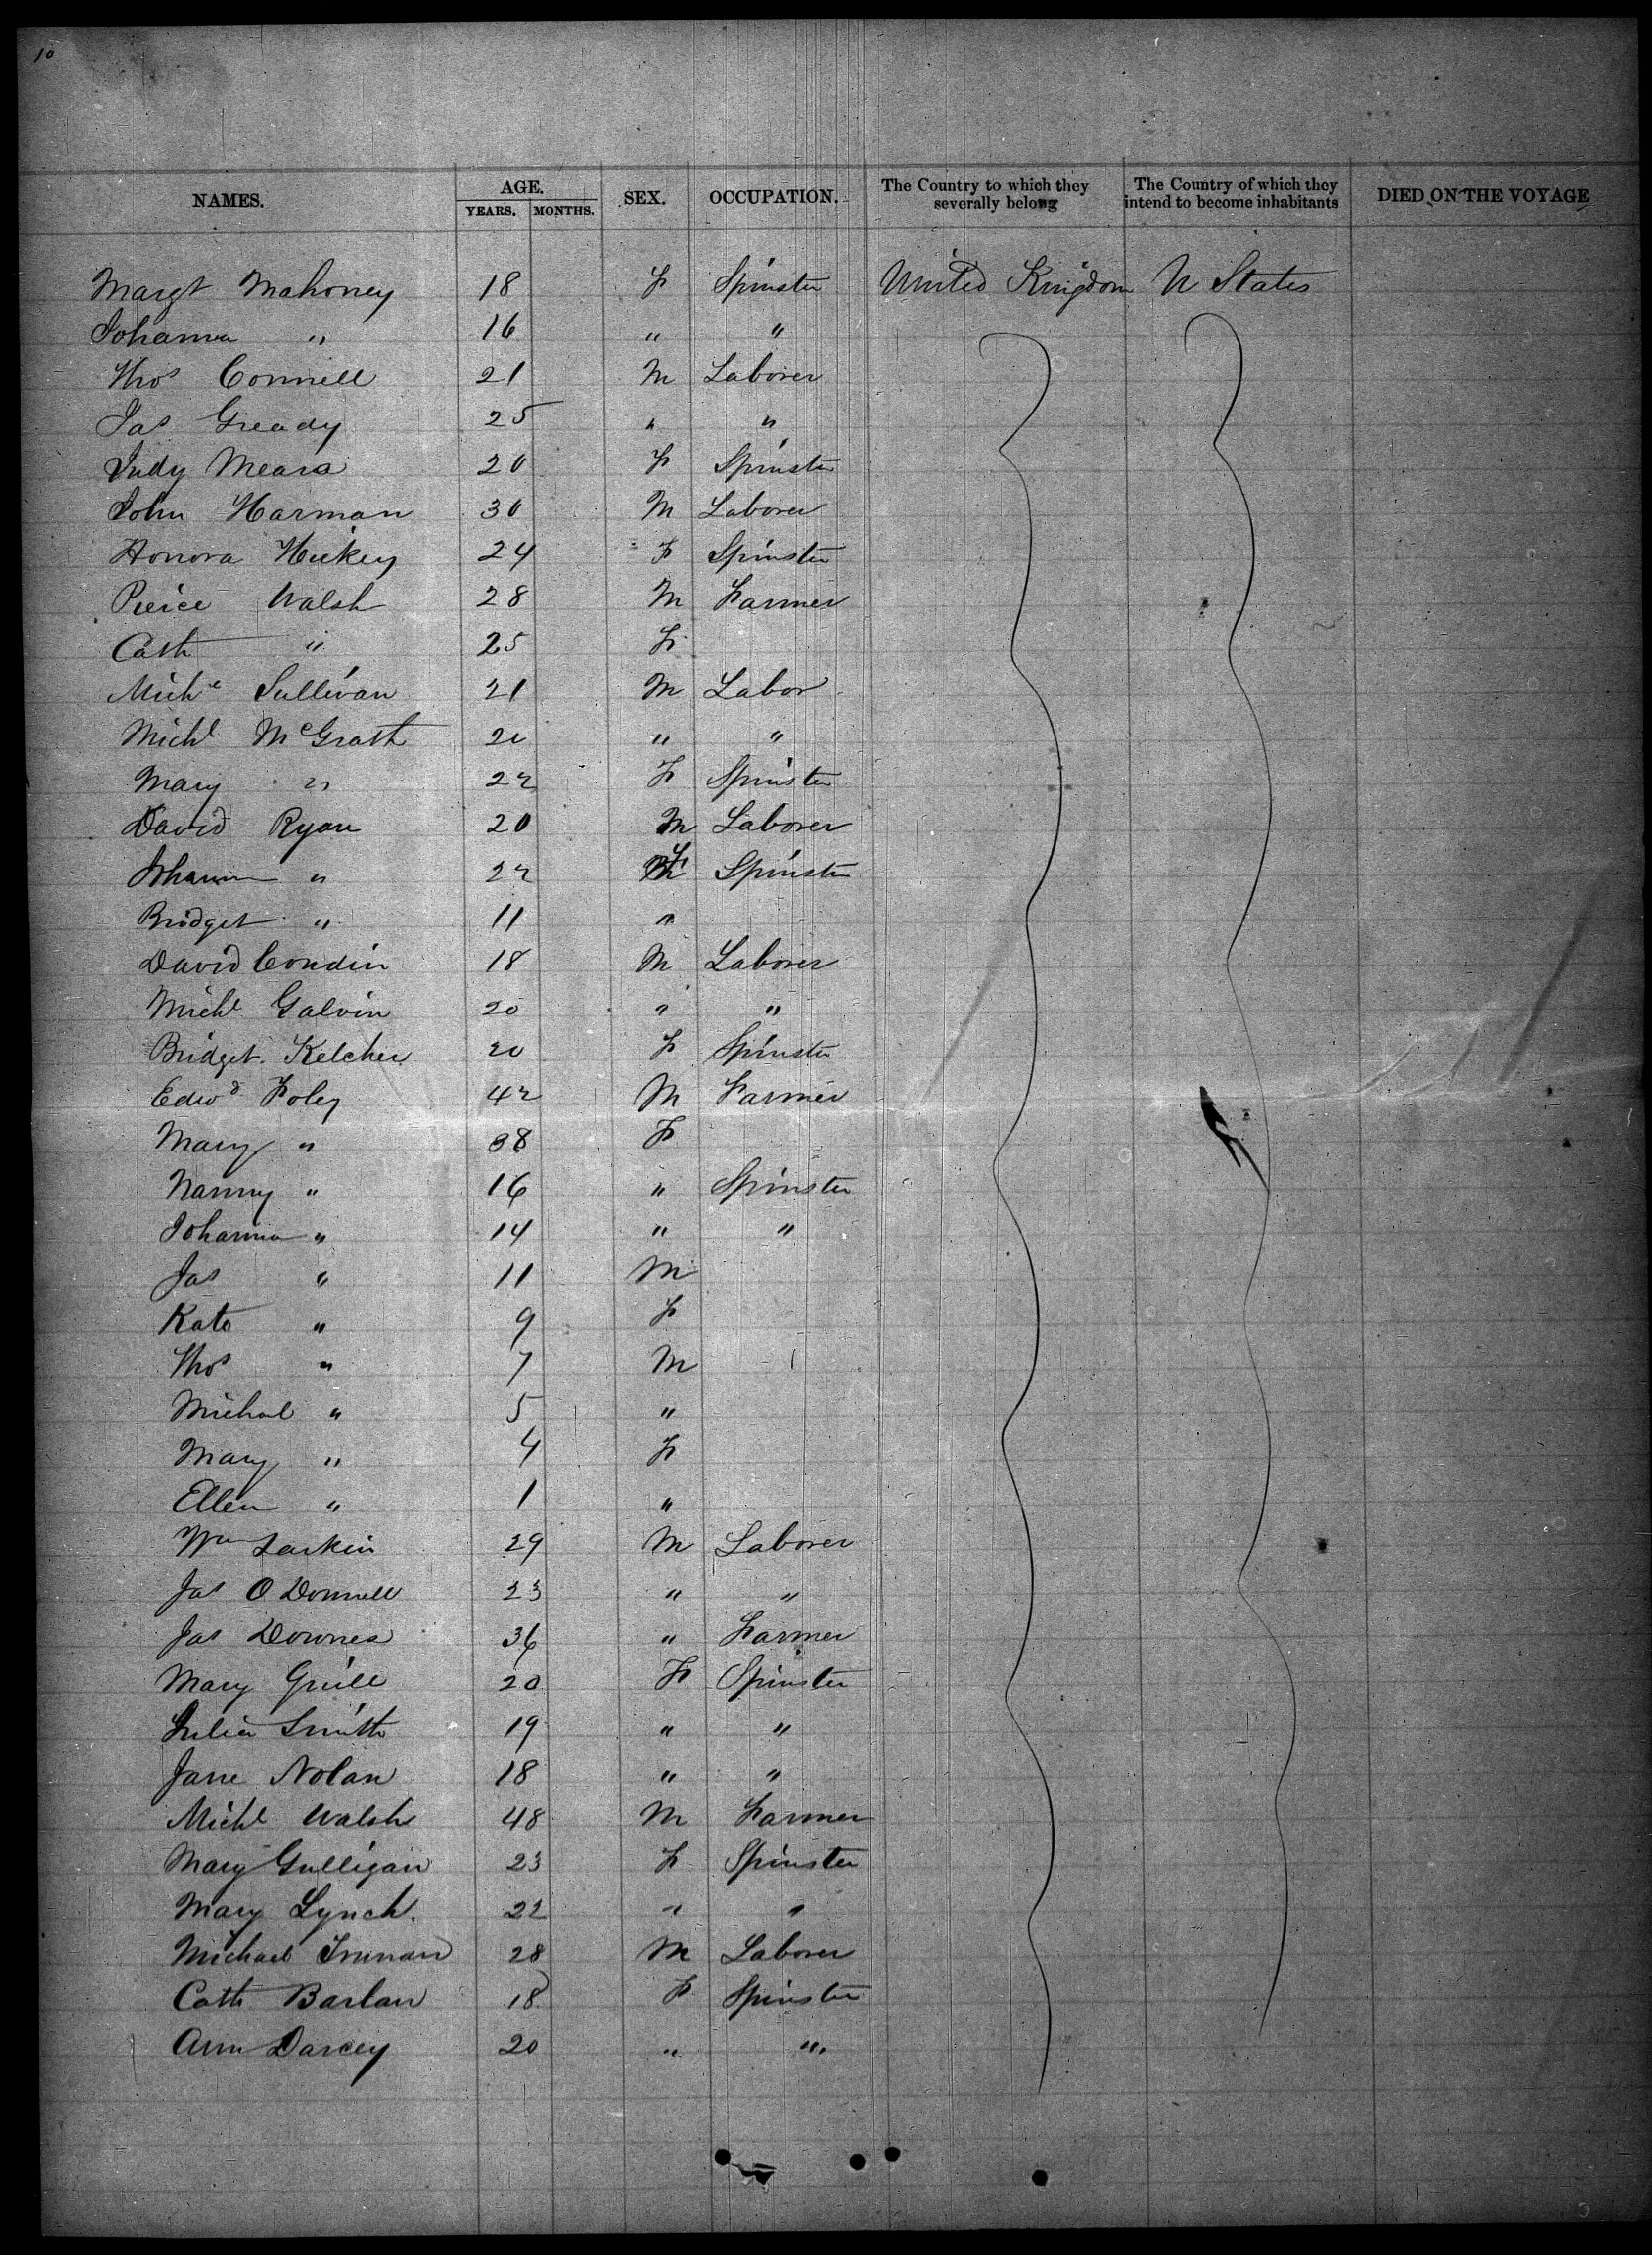 10
NAMES. AGE. SEX. OCCUPATION. The Country to which they severally belong The Country of which they intend to become inhabitants DIED ON THE VOYAGE
YEARS. MONTHS.
Margt Mahoney 18 F Spinster United Kingdom U States
Johanna " 16 " "
Thos Connell 21 M Laborer
Jas Gready 25 " "
Judy Meara 20 F Spinster
John Harman 30 M Laborer
Honora Hickey 24 F Spinster
Pierce Walsh 28 M Farmer
Cath " 25 F
Michl Sullivan 21 M Labor
Michl McGrath 20 " "
Mary " 22 F Spinster
David Ryan 20 M Laborer
Johanna " 22 F Spinster
Bridget " 11 "
David Condin 18 M Laborer
Michl Galvin 20 " "
Bridget Kelcher 20 F Spinster
Edwd Foley 42 M Farmer
Mary " 38 F
Nanny " 16 " Spinster
Johanna " 14 " "
Jas " 11 M
Kate " 9 F
Thos " 7 M
Michal " 5 "
Mary " 4 F
Ellen " 1 "
Wm Larkin 29 M Laborer
Jas O Donnell 23 " "
Jas Downes 36 " Farmer
Mary 20 F Spinster
Julia Smith 19 " "
Jane Nolan 18 " "
Michl Walsh 48 M Farmer
Mary Gulligan 23 F Spinster
Mary Lynch. 22 " "
Michael 28 M Laborer
Cath Barlan 18 F Spinster
Ann Darcey 20 " "